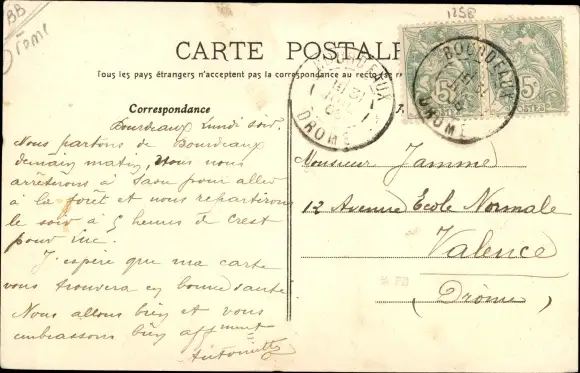 BB
Drome
1258
CARTE POSTALE
Tous les pays étrangers n'acceptent pas la correspondance au recto
BOURDEAUX
31
DROME
BOURDEAUX
DROME
5c
5c
POSTES
Correspondance
Bourdeaux Lundi soir.
Nous partons de Bourdeaux
demain matin, nous nous
arrêterons à Saou pour aller
à la forêt et nous repartirons
le soir à 5 heures de Crest
pour
J'espère que ma carte
vous trouvera en bonne santé
Nous allons bien et vous
embrassons bien affment
Antoinette
Monsieur Jamme
12 Avenue Ecole Normale
Valence
(Drôme)